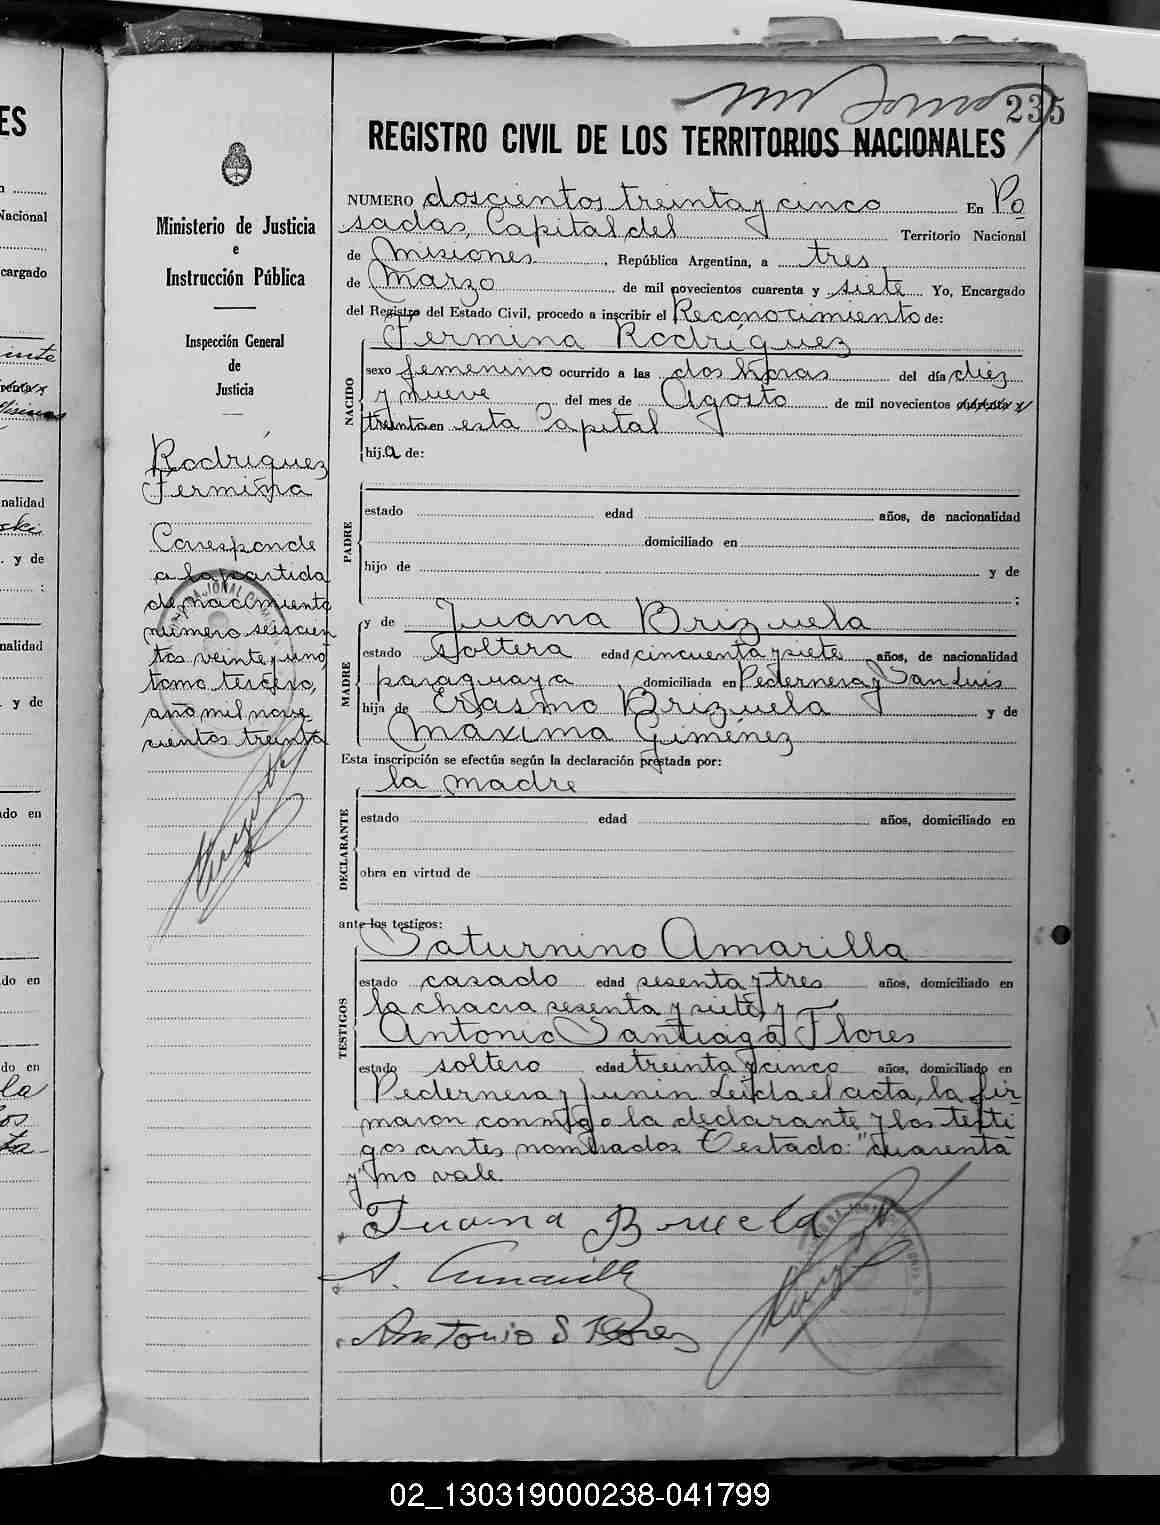 235
REGISTRO CIVIL DE LOS TERRITORIOS NACIONALES
Ministerio de Justicia
e
Instrucción Pública
Inspección General
de
Justicia
Rodríguez
Fermina
Corresponde
a la partida
de nacimiento
número seiscien
tos veinte y uno
tomo tercero,
año mil nove
cientos treinta
NUMERO doscientos treinta y cinco En Po
sadas, Capital del Territorio Nacional
de Misiones, República Argentina, a tres
de Marzo de mil novecientos cuarenta y siete Yo, Encargado
del Registro del Estado Civil, procedo a inscribir el Reconocimiento de:
NACIDO
Fermina Rodríguez
sexo femenino ocurrido a las dos horas del día diez
y nueve del mes de Agosto de mil novecientos cuarenta y
treinta en esta Capital
hija de:
PADRE
estado edad años, de nacionalidad
domiciliado en
hijo de y de
:
MADRE
y de Juana Brizuela
estado soltera edad cincuenta y siete años, de nacionalidad
paraguaya domiciliada en Pedernera y San Luis
hija de Erasmo Brizuela y de
Máxima Giménez
Esta inscripción se efectúa según la declaración prestada por:
la madre
DECLARANTE
estado edad años, domiciliado en
obra en virtud de
ante los testigos:
TESTIGOS
Saturnino Amarilla
estado casado edad sesenta y tres años, domiciliado en
la chacra sesenta y siete, y
Antonio Santiago Flores
estado soltero edad treinta y cinco años, domiciliado en
Pedernera y Junin Leida el acta, la fir-
maron conmigo la declarante y los testi-
gos antes nombrados. Testado: "cuarenta
y" no vale.
Juana Bruela
A. Amarilla
Antonio S Flores
ES
Nacional
cargado
nalidad
y de
:
nalidad
y de
do en
do en
do en
02_130319000238-041799